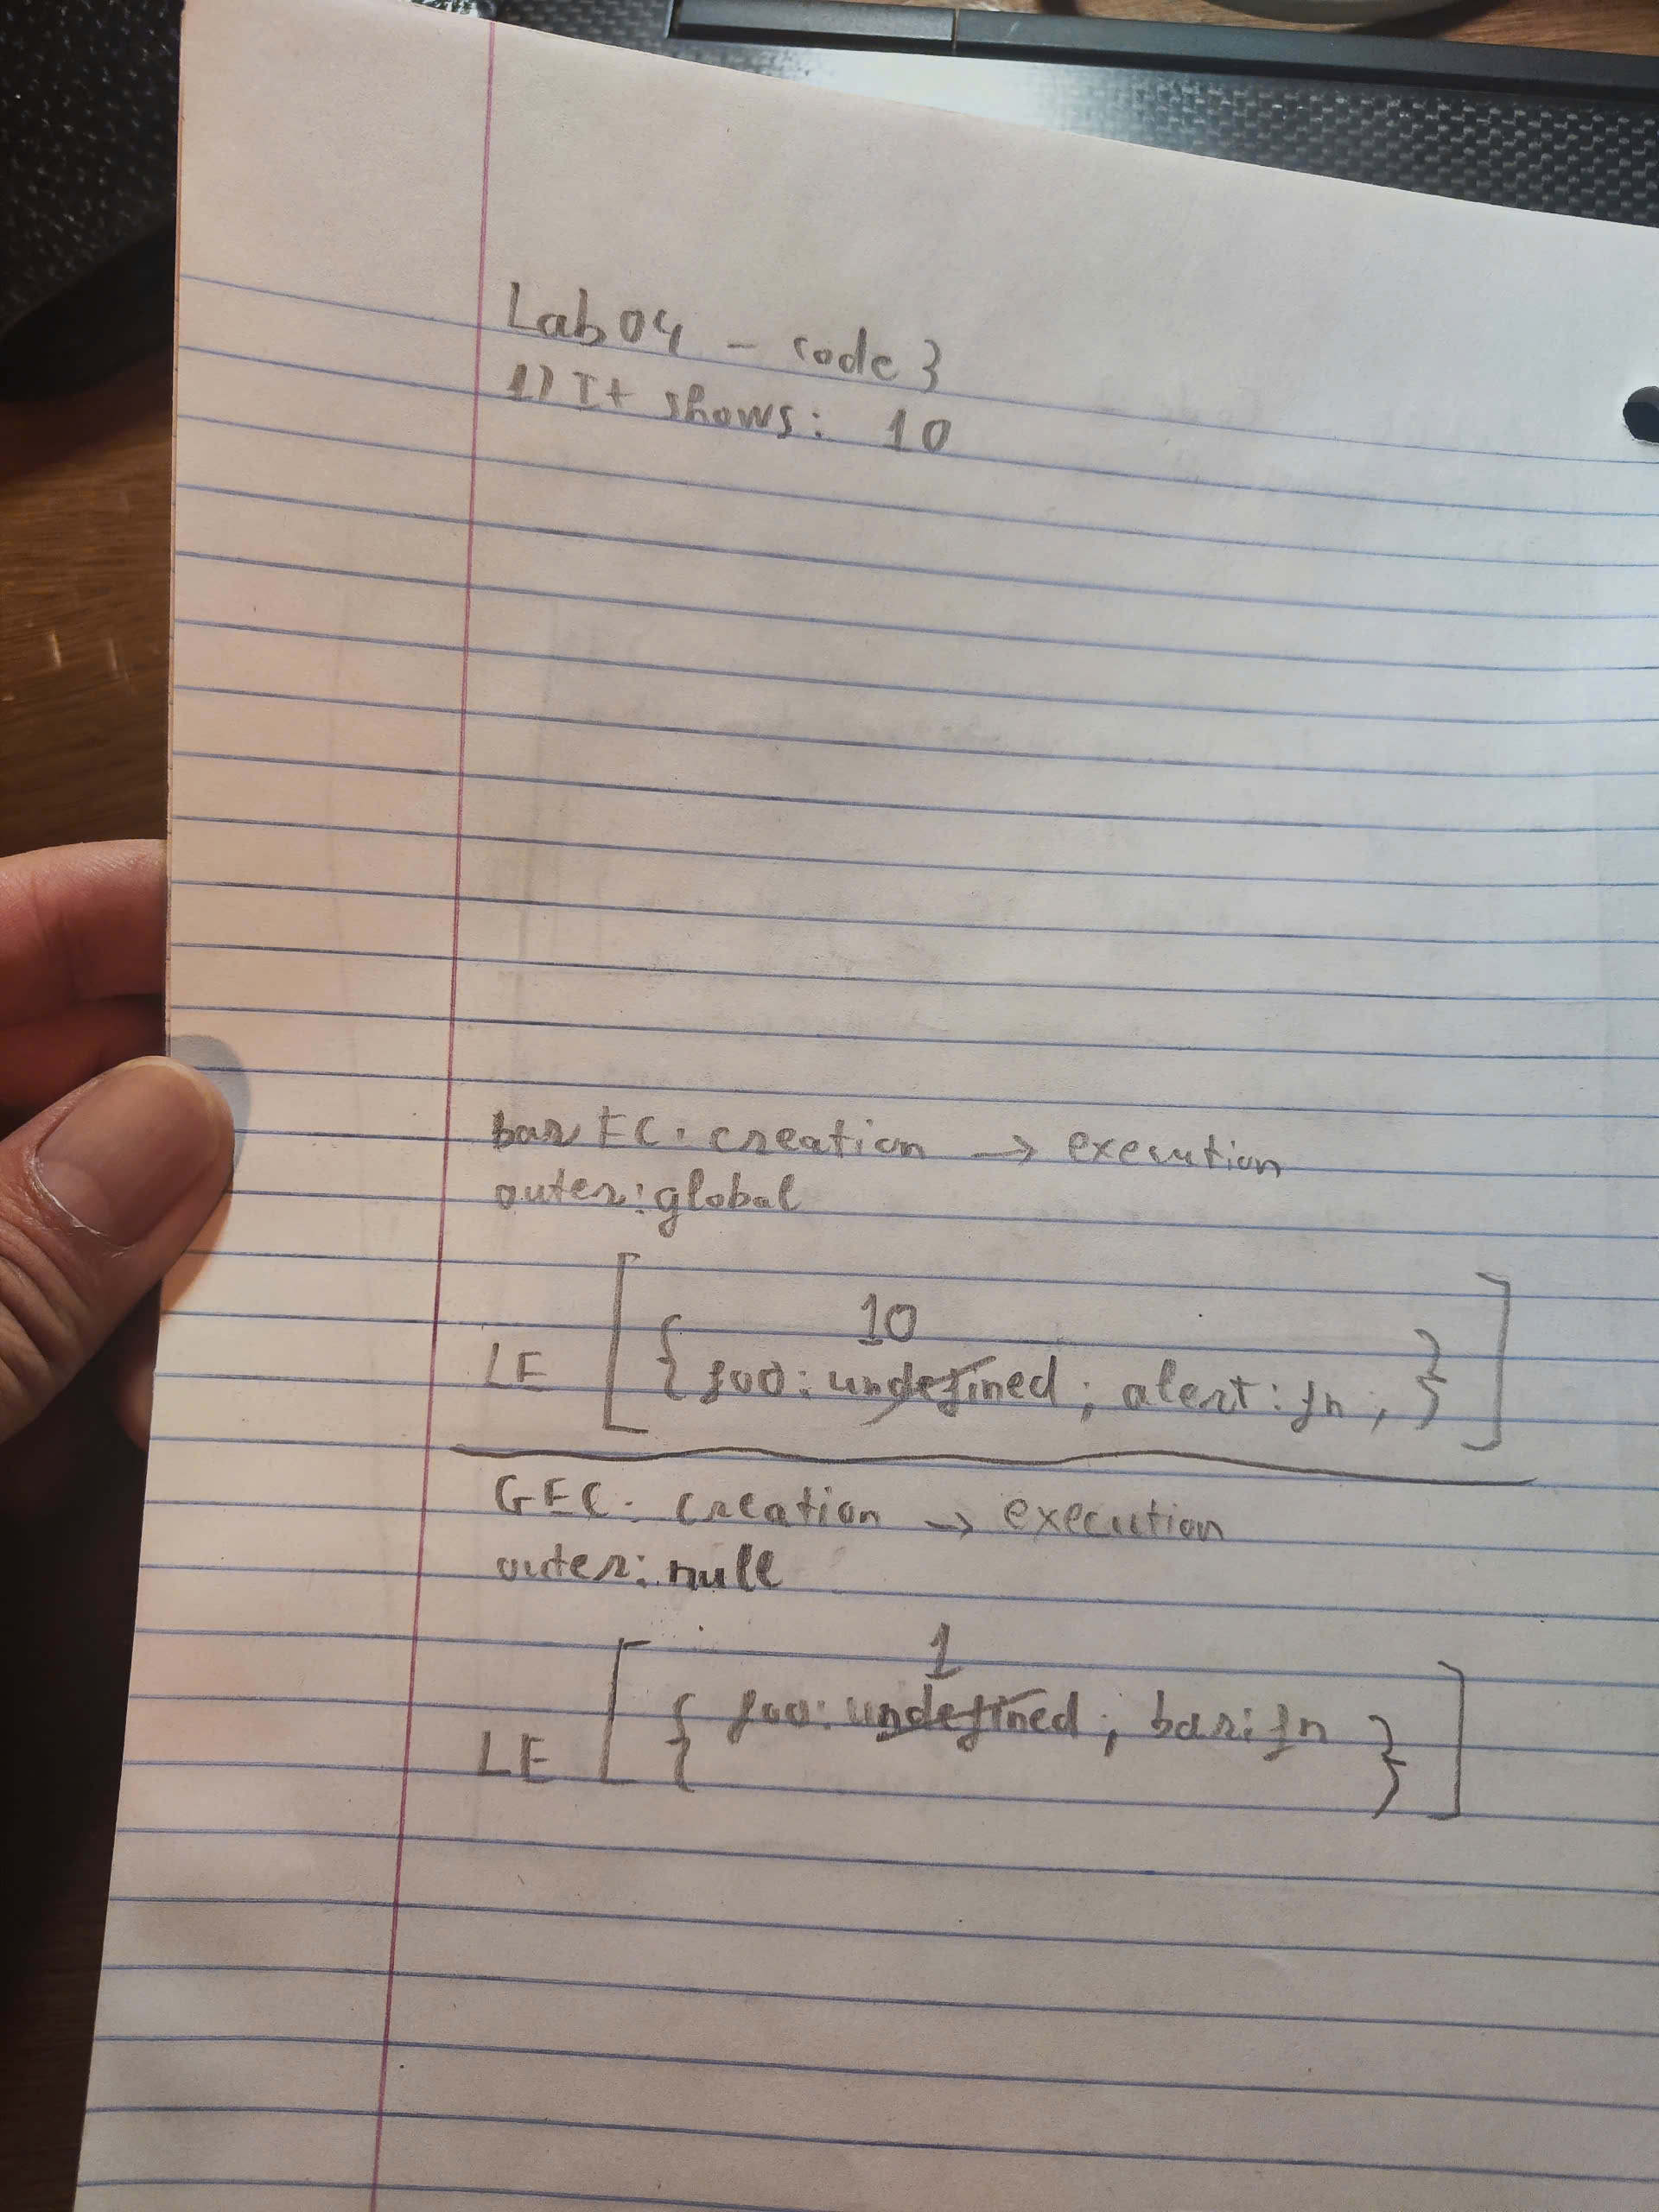 Lab 04 - code 3
1) It shows: 10
bar EC: creation → execution
outer: global
10
LE [ { foo: undefined ; alert: fn ; } ]
GEC: creation → execution
outer: null
1
LE [ { foo: undefined ; bar: fn } ]